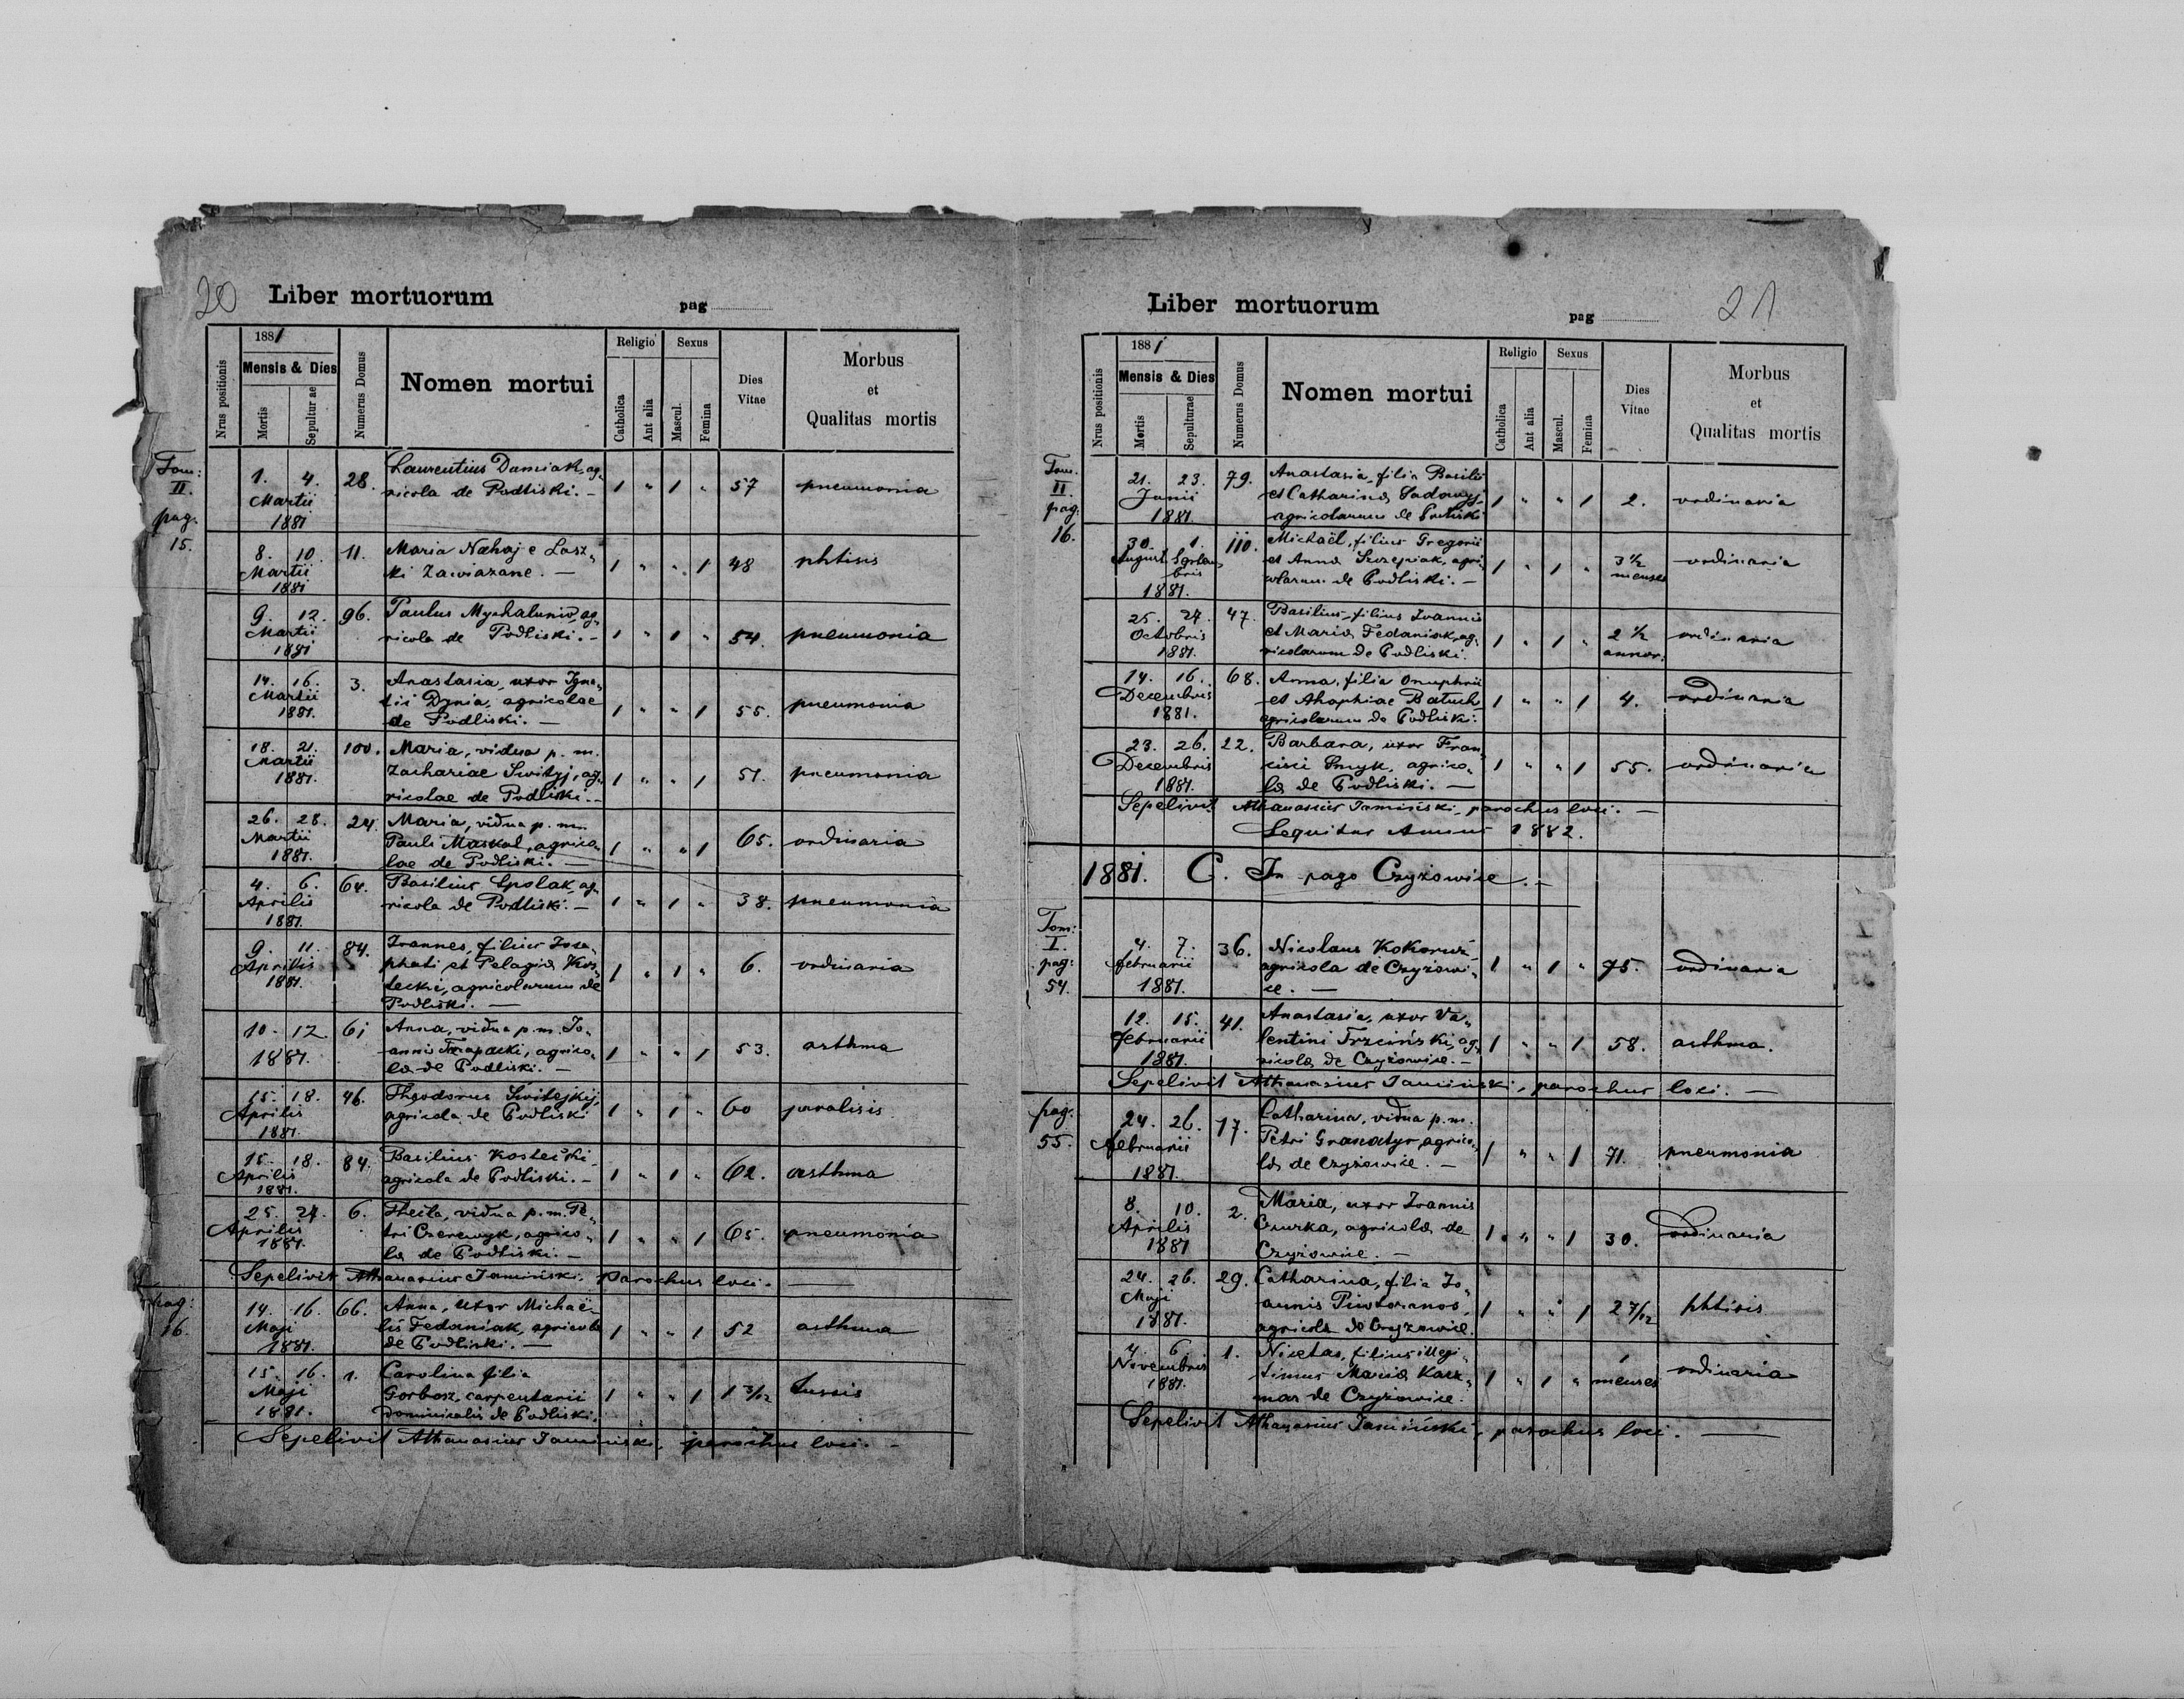 20
Liber mortuorum pag
Nrus positionis
1881
Mensis & Dies
Mortis
Sepultur ae
Numerus Domus
Nomen mortui
Religio
Catholica
Ant alia
Sexus
Mascul.
Femina
Dies
Vitae
Morbus
et
Qualitas mortis
Tom:
II.
pag.
15.
1. 4. 28. Laurentius Damiak, ag-
Martii ricola de Podliski. - 1 " 1 " 57 pneumonia
1881
8. 10. 11. Maria Nahaj e Lasz-
Martii ki Zawiazane. - 1 " " 1 48 phtisis
1881
9. 12. 96. Paulus Mychaluniw, ag-
Martii ricola de Podliski. - 1 " 1 " 54. pneumonia
1881
14. 16. 3. Anastasia, uxor Igna-
Martii tii Dynia, agricolae 1 " " 1 55. pneumonia
1881. de Podliski. -
18. 21. 100. Maria, vidua p. m.
Martii Zachariae Swityj, ag- 1 " " 1 51. pneumonia
1881. ricolae de Podliski. -
26. 28. 24. Maria, vidua p. m.
Martii Pauli Maskal, agrico- 1 " " 1 65. ordinaria
1881. lae de Podliski. -
4. 6. 64. Basilius Spolak, ag-
Aprilis ricola de Podliski. - 1 " 1 " 38. pneumonia
1881.
9. 11. 84. Ioannes, filius Josa-
Aprilis phati et Pelagia Kos- 1 " 1 " 6. ordinaria
1881. tecki, agricolarum de
Podliski. -
10. 12. 61 Anna, vidua p. m. Jo-
1881. annis Trapacki, agrico- 1 " " 1 53. asthma
la de Podliski. -
15. 18. 46. Theodorus Switejkij,
Aprilis agricola de Podliski 1 " 1 " 60 paralisis
1881.
15. 18. 84. Basilius Kostecki,
Aprilis agricola de Podliski. - 1 " 1 " 62. asthma
1881.
25. 27. 6. Thecla, vidua p. m. Pe-
Aprilis tri Czerewyk, agrico- 1 " " 1 65. pneumonia
1881. la de Podliski. -
Sepelivit Athanasius Jamiński, parochus loci. -
pag:
16.
14. 16. 66. Anna, uxor Michaë-
Maji lis Fedaniak, agricola 1 " " 1 52 asthma
1881. de Podliski. -
15. 16. 1. Carolina filia
Maji Gorbosz, carpentarii 1 " " 1 1 3/12 tussis
1881. dominicalis de Podliski.
Sepelivit Athanasius Jamiński, parochus loci. -
21
Liber mortuorum pag
Nrus positionis
1881
Mensis & Dies
Mortis
Sepulturae
Numerus Domus
Nomen mortui
Religio
Catholica
Ant alia
Sexus
Mascul.
Femina
Dies
Vitae
Morbus
et
Qualitas mortis
Tom.
II.
pag:
16.
21. 23. 79. Anastasia, filia Basilii
Junii et Catharina Sadowyj, 1 " " 1 2. ordinaria
1881. agricolarum de Podliski
30. 1. 110. Michaël, filius Gregorii
August Septem- et Anna Szczepiak, agri- 1 " 1 " 3 1/2 ordinaria
bris colarum de Podliski. - menses
1881.
25. 27. 47. Basilius, filius Ioannis
Octobris et Maria Fedaniak, ag- 1 " 1 " 2 1/2 ordinaria
1881. ricolarum de Podliski. annor.
14. 16. 68. Anna, filia Onuphrii
Decembris et Ahaphiae Batuch 1 " " 1 4. ordinaria
1881. agricolarum de Podliski.
23. 26. 22. Barbara, uxor Fran-
Decembris cisci Smyk, agrico- 1 " " 1 55. ordinaria
1881. la de Podliski. -
Sepelivit Athanasius Jamiński, parochus loci. -
Sequitur Annus 1882.
1881. C. In pago Czyżowice. -
Tom:
I.
pag:
54.
4. 7. 36. Nicolaus Kokoruż
Februarii agricola de Czyżowi- 1 " 1 " 75. ordinaria
1881. ce. -
12. 15. 41. Anastasia, uxor Va-
Februarii lentini Trzciński, ag- 1 " " 1 58. asthma.
1881. ricola de Czyżowice. -
Sepelivit Athanasius Jamiński, parochus loci. -
pag:
55.
24. 26. 17. Catharina, vidua p. m.
Februarii Petri Granatyr, agrico- 1 " " 1 71. pneumonia
1881. la de Czyżowice. -
8. 10. 2. Maria, uxor Ioannis
Aprilis Czurka, agricola de 1 " " 1 30. ordinaria
1881 Czyżowice. -
24. 26. 29. Catharina, filia Jo-
Maji annis Piwtoranos, 1 " " 1 2 7/12 phtisis
1881. agricola de Czyżowice.
4. 6. 1. Nicetas, filius illegi- 1
Novembris timus Maria Kacz- 1 " 1 " menses ordinaria
1881. mar de Czyżowice.
Sepelivit Athanasius Jamiński, parochus loci. -